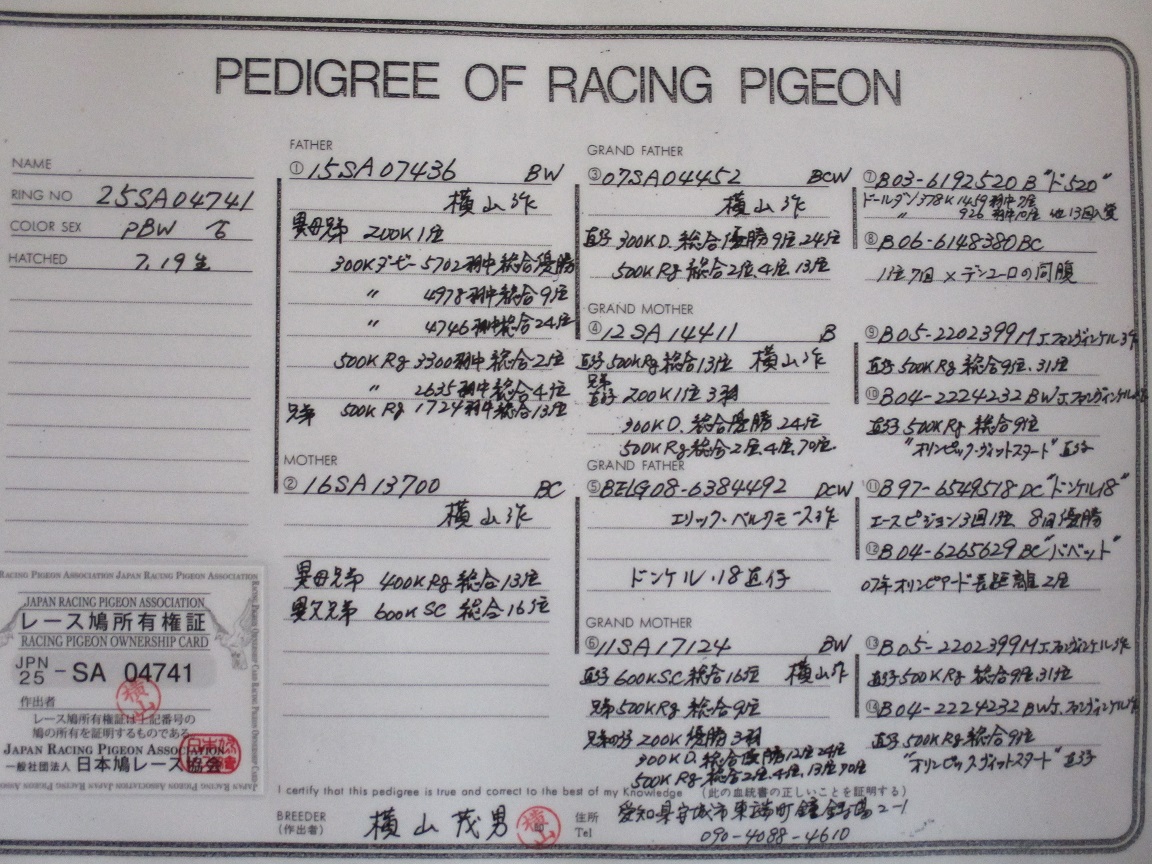 PEDIGREE OF RACING PIGEON
NAME
RING NO 25SA04741
COLOR SEX PBW ♂
HATCHED 7.19生
FATHER
① 15SA07436 BW
横山作
異母兄弟 200K1位
300Kダービー5702羽中総合優勝
〃 4978羽中総合9位
〃 4746羽中総合24位
500K Rg 3300羽中総合2位
〃 2635羽中総合4位
兄弟 500K Rg 1724羽中総合13位
MOTHER
② 16SA13700 BC
横山作
異母兄弟 400K Rg 総合13位
異父兄弟 600K SC 総合16位
GRAND FATHER
③ 07SA04452 BCW
横山作
直子 300K D. 総合優勝 9位 24位
500K Rg 総合2位、4位、13位
GRAND MOTHER
④ 12SA14411 B
直子 500K Rg 総合13位 横山作
兄弟
直子 200K1位 3羽
300K D. 総合優勝 24位
500K Rg 総合2位、4位、70位
GRAND FATHER
⑤ BELG08-6384492 DCW
エリック・ベルクモース作
ドンケル・18直仔
GRAND MOTHER
⑥ 11SA17124 BW
直子 600K SC 総合16位 横山作
兄弟 500K Rg 総合9位
兄弟の子 200K 優勝3羽
300K D. 総合優勝 12位 24位
500K Rg 総合2位、4位、13位 70位
⑦ B03-6192520 B "ド520"
ドールダン 378K 1459羽中7位
〃 926羽中10位 他13回入賞
⑧ B06-6148380 BC
1位7回 × デンユーロの同腹
⑨ B05-2202399 M J.ファンヴィンケル作
直子 500K Rg 総合9位、31位
⑩ B04-2224232 BW J.ファンヴィンケル作
直子 500K Rg 総合9位
"オリンピック・ヴィットスタート" 直子
⑪ B97-6549518 DC "ドンケル18"
エースピジョン3回1位 8回優勝
⑫ B04-6265629 BC "バベット"
07年オリンピアード長距離2位
⑬ B05-2202399 M J.ファンヴィンケル作
直子 500K Rg 総合9位、31位
⑭ B04-2224232 BW J.ファンヴィンケル作
直子 500K Rg 総合9位
"オリンピックヴィットスタート" 直子
JAPAN RACING PIGEON ASSOCIATION
レース鳩所有権証
RACING PIGEON OWNERSHIP CARD
JPN
25 - SA 04741
作出者 横山
レース鳩所有権証は上記番号の
鳩の所有を証明するものである
JAPAN RACING PIGEON ASSOCIATION
一般社団法人 日本鳩レース協会
I certify that this pedigree is true and correct to the best of my Knowledge (此の血統書の正しいことを証明する)
BREEDER
(作出者) 横山茂男 横山
住所 愛知県安城市東端町鐘鋳場2-1
Tel 090-4088-4610